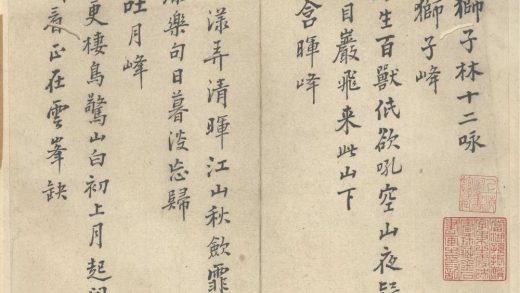 獅子林十二咏
獅子峰
生百獸低欲吼空山夜
目巖飛来此山下
含暉峰
漾弄清暉江山秋歛霏
樂句日暮淡忘歸
吐月峰
更棲鳥驚山白初上月起
看正在雲峯缺